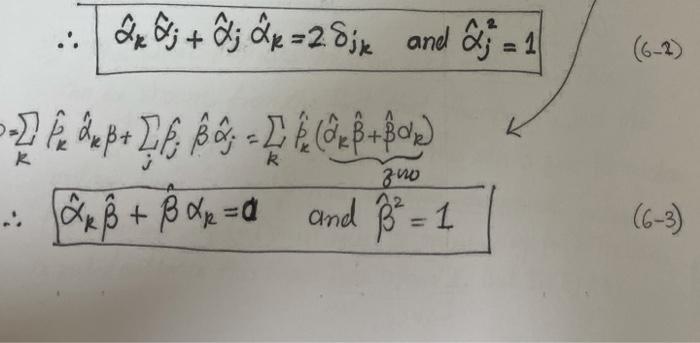 ∴ α̂ₖ α̂ⱼ + α̂ⱼ α̂ₖ = 2 δⱼₖ and α̂ⱼ² = 1 (6-2)
0 = ∑ₖ p̂ₖ α̂ₖ β + ∑ⱼ p̂ⱼ β̂ α̂ⱼ = ∑ₖ p̂ₖ (α̂ₖ β̂ + β̂ αₖ)
zero
∴ α̂ₖ β̂ + β̂ αₖ = 0 and β̂² = 1 (6-3)